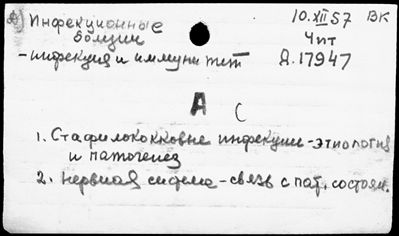 Инфекционные 10.XII 57 ВК
болезни Чит
- инфекция и иммунитет Д.17947
А С
1. Стафилококковые инфекции - этиология
и патогенез
2. Нервная система - связь с пат. состоян.